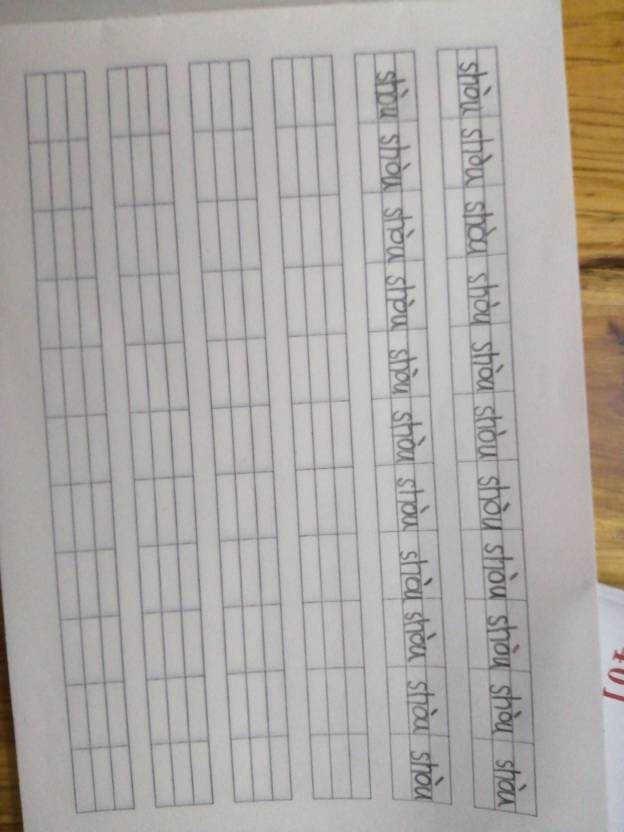 shòu shòu shòu shòu shòu shòu shòu shòu shòu shòu shòu
shòu shòu shòu shòu shòu shòu shòu shòu shòu shòu shòu